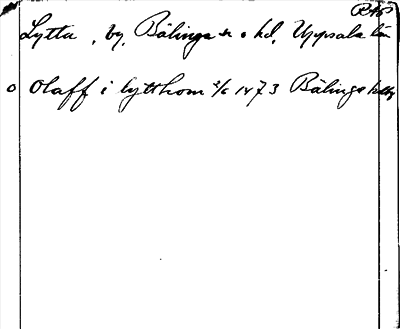 Lytta, by, Bälinge sn o hd, Uppsala län
o Olaff i lytthom 2/6 1473 Bälinge